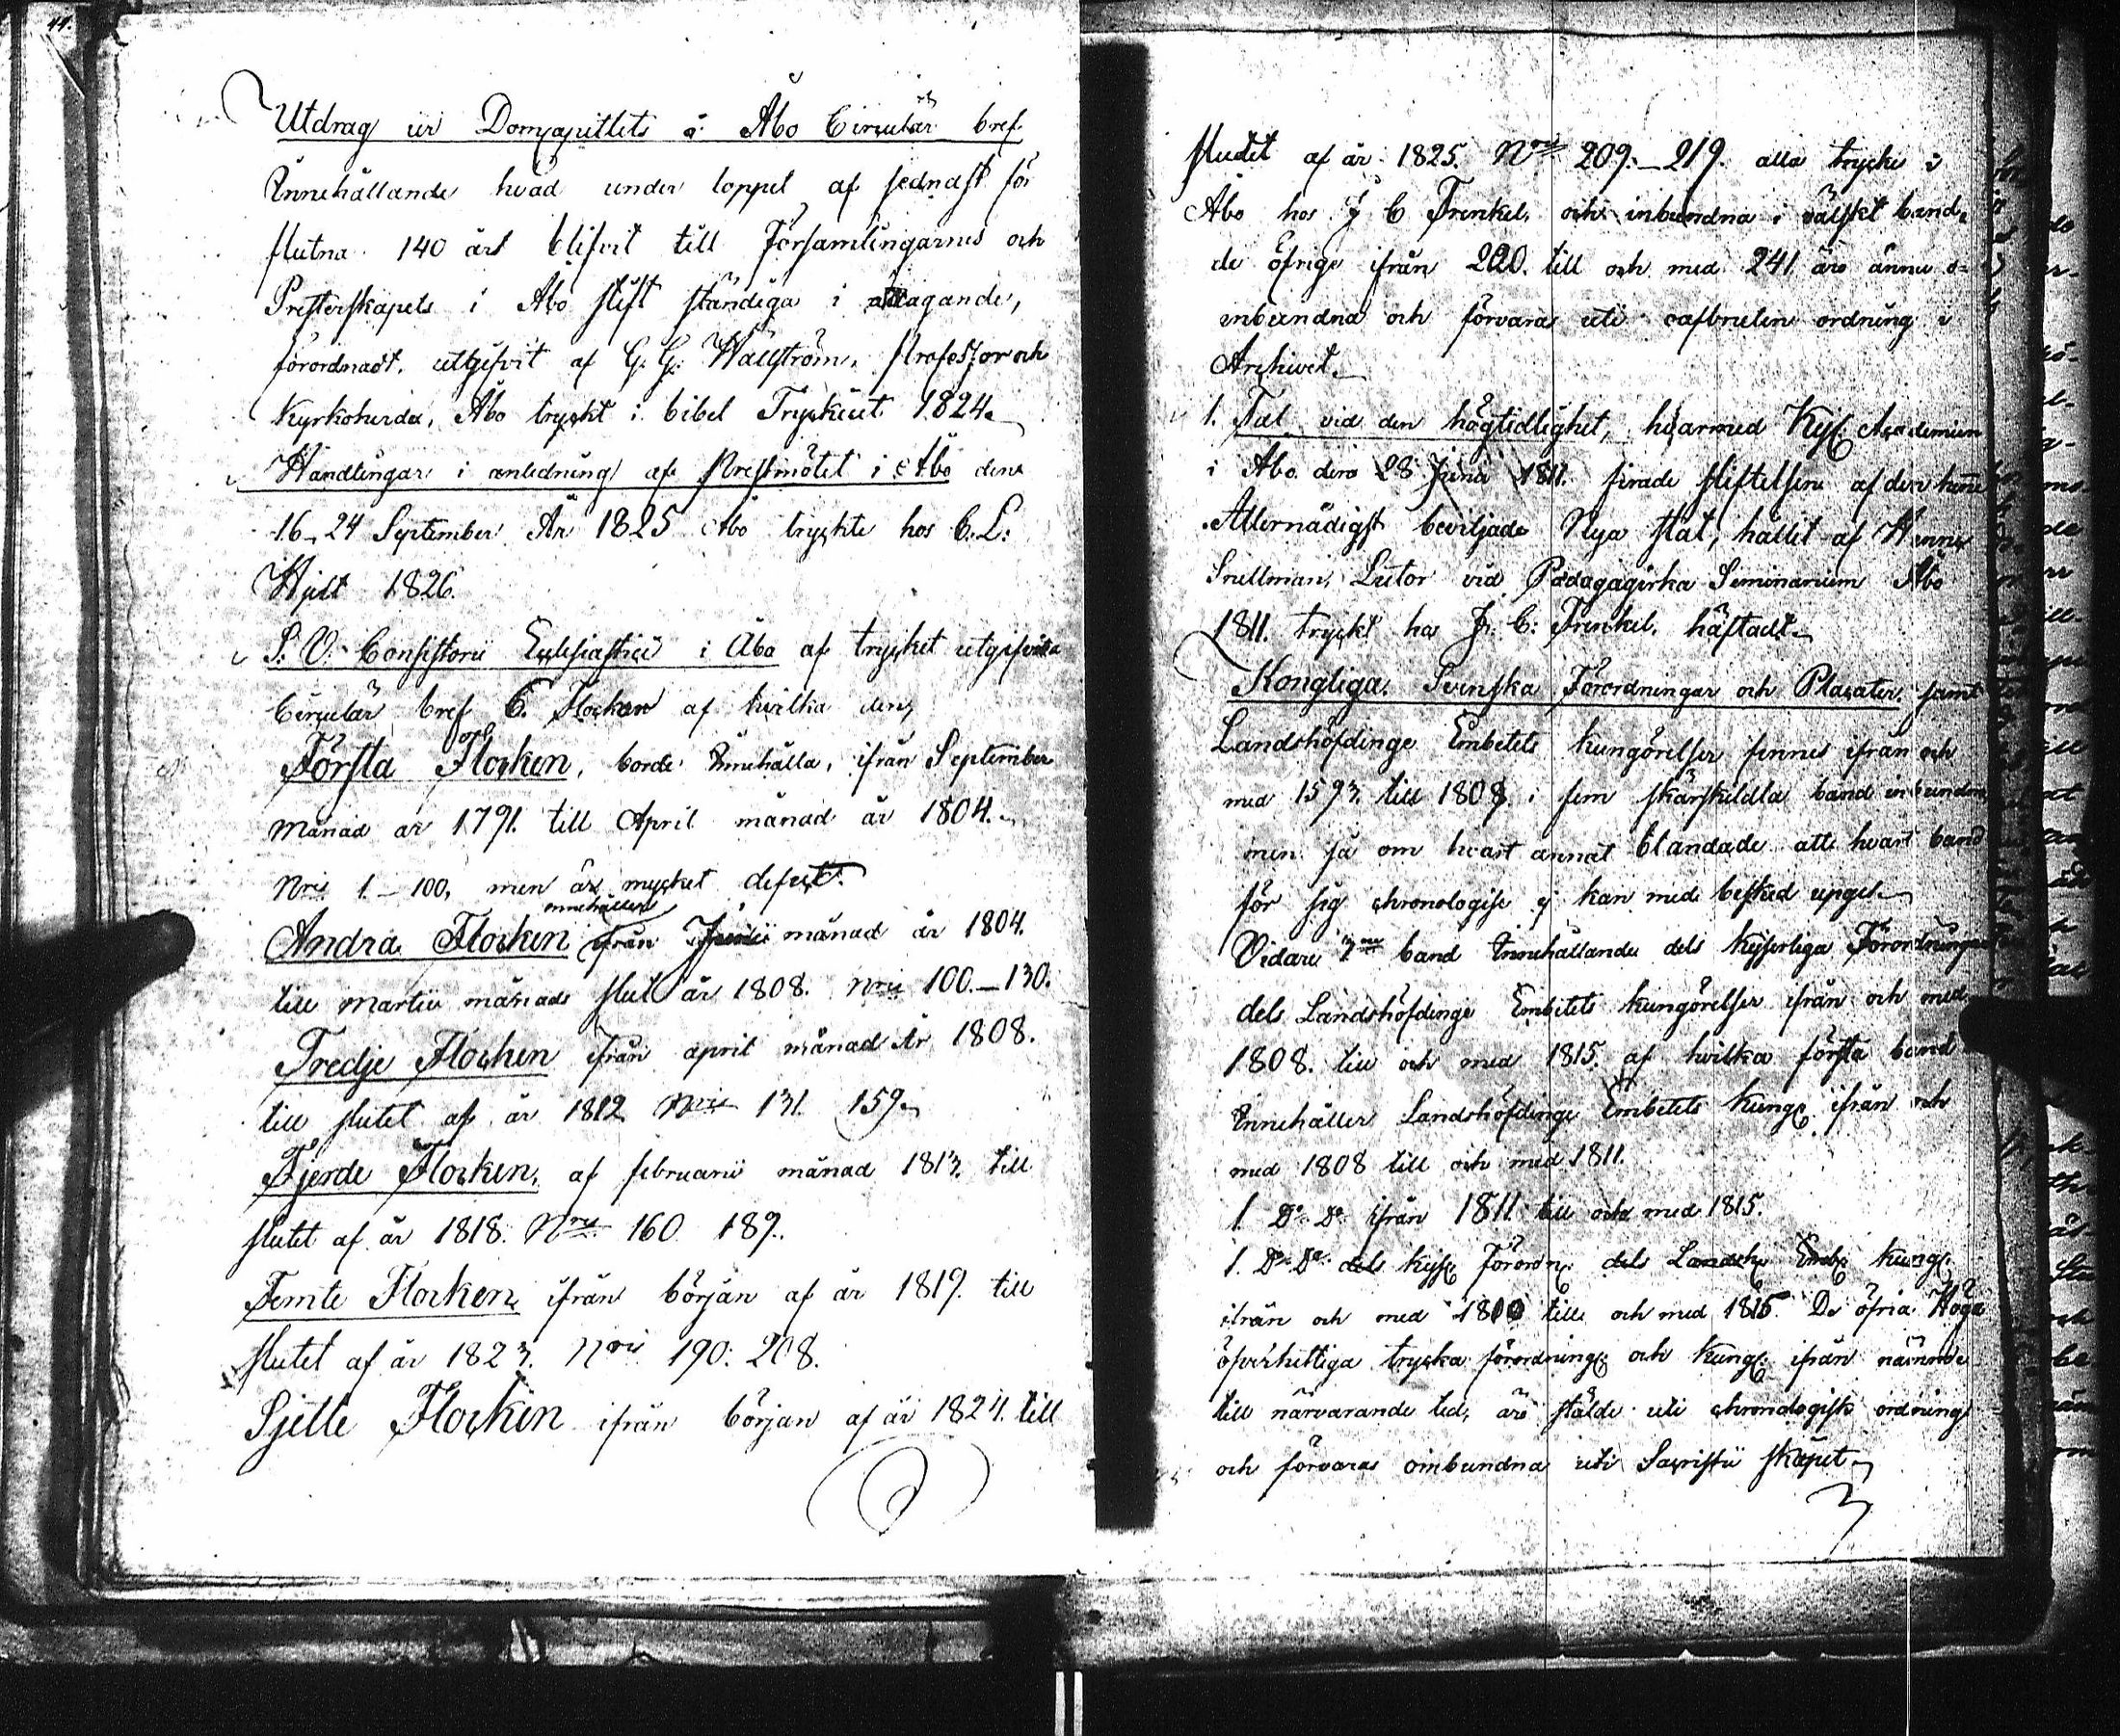 44.
Utdrag ur Domcapitlets i Åbo Circulär bref
Innehållande hvad under loppet af sednast för
flutna 140 års blifvit till Församlingarnes och
Presterskapets i Åbo stift ständiga i agttagande,
förordnadt, utgifvit af G. G. Hällström, Professor och
Kyrkoherda, Åbo tryckt i bibel Tryckeriet 1824.
Handlingar i anledning af Prestmötet i Åbo den
16-24 September År 1825 Åbo tryckte hos C. L:
Hjelt 1826.
S. V. Consistorii Eclesiastici i Åbo af trycket utgifvita
Circulär bref 6. Flocken af hvilka den
Första Flocken, borde Innehålla, ifrån September
månad år 1791. till April månad år 1804.
Nris 1-100, men är mycket defect.
innehåller
Andra Flocken ifrån Junii månad år 1804.
till martii månads slut år 1808. Nris 100.-130.
Tredje Flocken ifrån april månad År 1808.
till slutet af år 1812 Nris 131. 159.
Fjerde Flocken, af februarii månad 1813. till
slutet af år 1818. Nris 160. 189.
Femte Flocken, ifrån början af år 1819. till
slutet af år 1823. Nris 190. 208.
Sjette Flocken ifrån början af år 1824. till
slutet af år 1825. Nris 209.-219. alla tryckte i
Åbo hos J C Frenkel, och inbundna i välskt band,
de öfrige ifrån 220. till och med 241. äro ännu o-
inbundna och förvaras uti oafbruten ordning i
Archivet.
1. Tal vid den högtidlighet, hvarmed Kejs. Academien
i Åbo den 28 Junii 1811. firade stiftelsen af den henne
Allernådigst beviljade Nya stat, hållit af
Snellman, Lutor vid Pædagogiska Seminarium Åbo
1811. tryckt hos J. C: Frenkel. häftadt.
Kongliga Svenska Förordningar och Placater, samt
Landshöfdinge Embetets kungörelser finnes ifrån och
med 1593. till 1808. i fem särskildta band inbundna
men så om hvart annat blandade att hvart band
för sig chronologise ej kan med besked upges.
Vidare 3ne band Innehållande dels Kejserliga Förordningar
dels Landshöfdinge Embetets kungörelser ifrån och med
1808. till och med 1815. af hvilka första band
Innehåller Landshöfdinge Embetets kung. ifrån och
med 1808 till och med 1811.
1. Do Do ifrån 1811. till och med 1815.
1. Do Do dels Kejs. Förordn. dels Landsh. Emb. kung.
ifrån och med 1810 till och med 1815. De öfria Höga
öfverhettliga trycka förordning. och kung. ifrån nämnde
till närvarande tid, äro stälde uti chronologisk ordning
och förvaras oinbundna uti Sacristii skåpet.